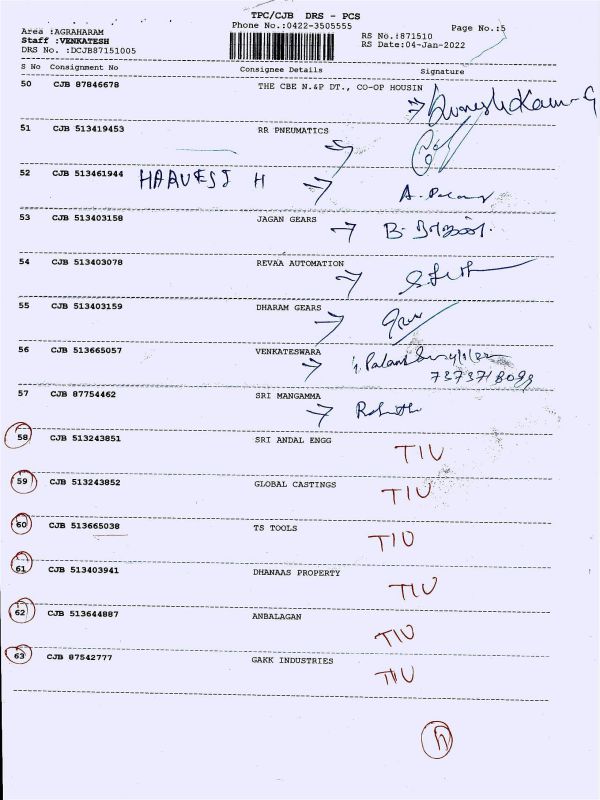 TPC/CJB DRS - PCS
Phone No.:0422-3505555
Page No.:5
Area :AGRAHARAM
Staff :VENKATESH
DRS No. :DCJB87151005
RS No.:871510
RS Date:04-Jan-2022
S No Consignment No Consignee Details Signature
50 CJB 87846678 THE CBE N.&P DT., CO-OP HOUSIN
51 CJB 513419453 RR PNEUMATICS
52 CJB 513461944 H
53 CJB 513403158 JAGAN GEARS
54 CJB 513403078 REVAA AUTOMATION
55 CJB 513403159 DHARAM GEARS
56 CJB 513665057 VENKATESWARA
57 CJB 87754462 SRI MANGAMMA
58 CJB 513243851 SRI ANDAL ENGG TIU
59 CJB 513243852 GLOBAL CASTINGS TIU
60 CJB 513665038 TS TOOLS TIU
61 CJB 513403941 DHANAAS PROPERTY TIU
62 CJB 513644887 ANBALAGAN TIU
63 CJB 87542777 GAKK INDUSTRIES TIU